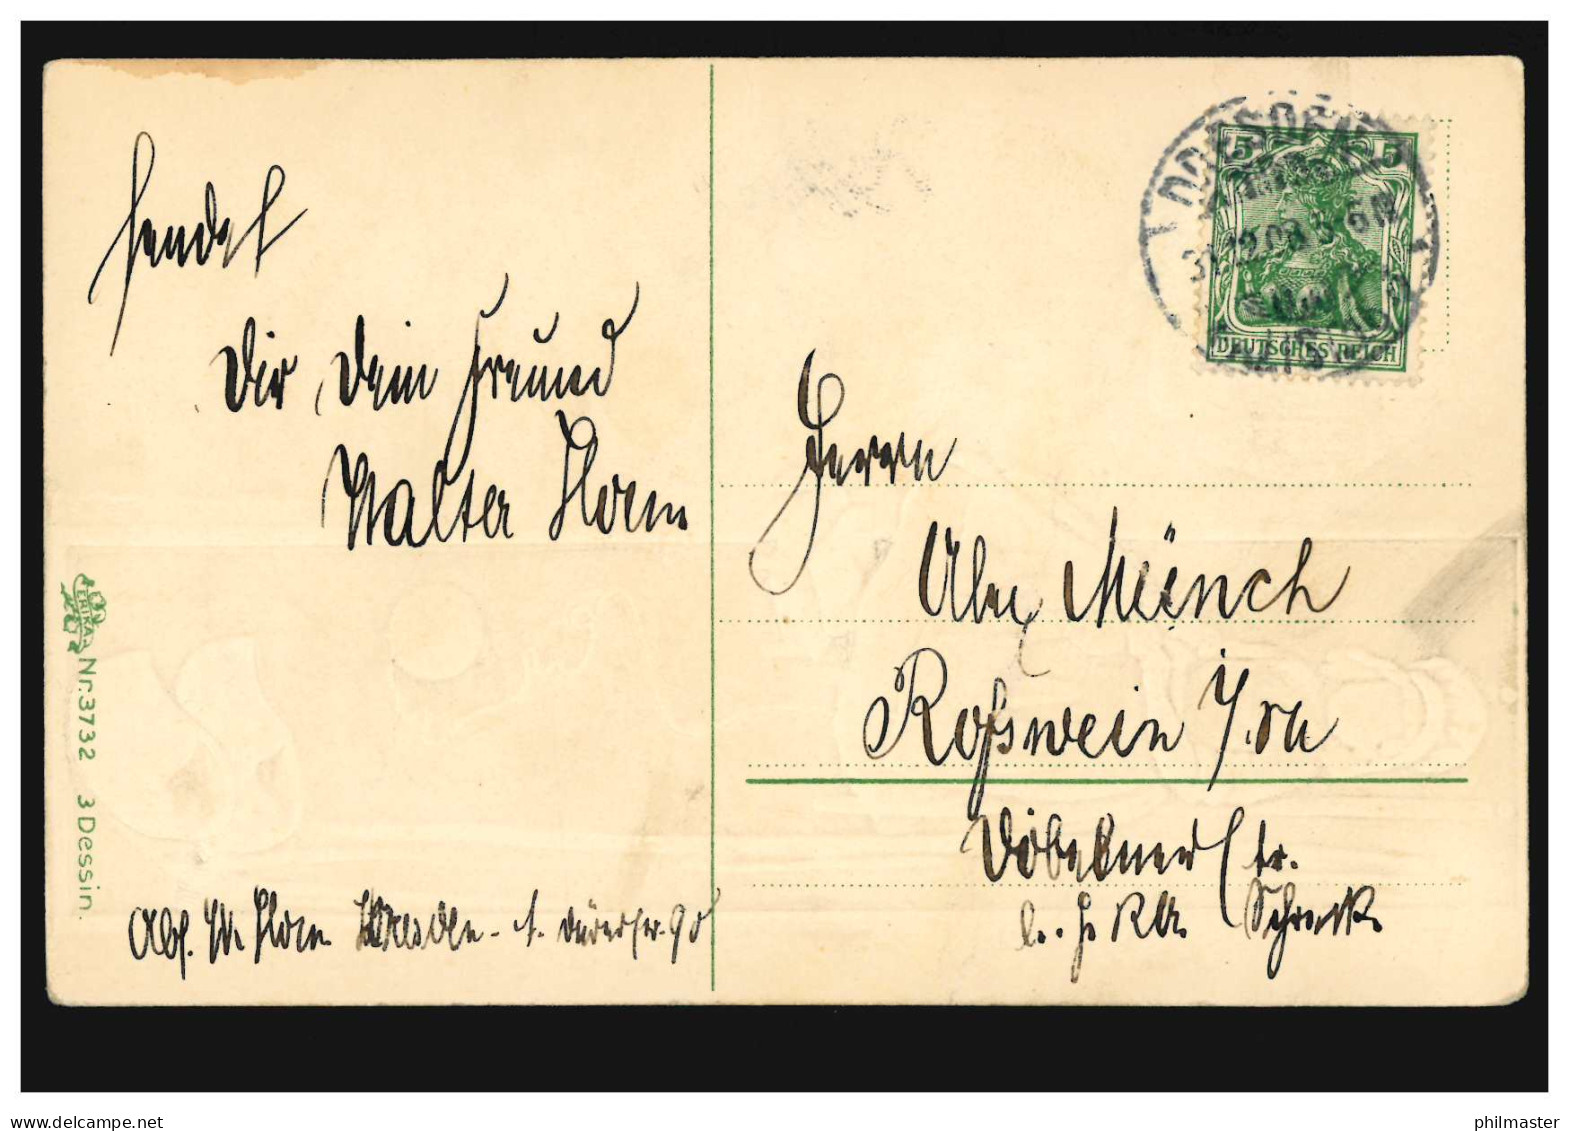 sendet
Dir, Dein Freund
Walter Horn
Abs. W. Horn Dresden - A. Dürerstr. 98
ERIKA
Nr. 3732 3 Dessin.
5 5
31.12.08 5-6N
DEUTSCHES REICH
Herrn
Alex Münch
Roßwein i/Sa
Döbelnerstr.
b. H. Schreck.
delcampe.net
philmaster